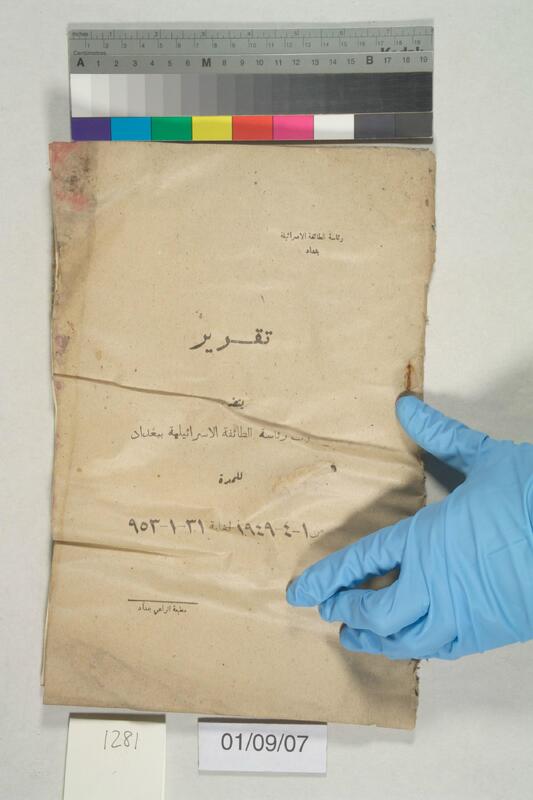 Inches 1 2 3 4 5 6 7
Centimetres
Kodak
A 1 2 3 4 5 6 M 8 9 10 11 12 13 14 15 B 17 18 19
رئاسة الطائفة الاسرائيلية
بغداد
تقرير
رئاسة الطائفة الاسرائيلية ببغداد
للمدة
من ١-٤-١٩٤٩ لغاية ٣١-١-٩٥٣
مطبعة الراعي بغداد
1281
01/09/07